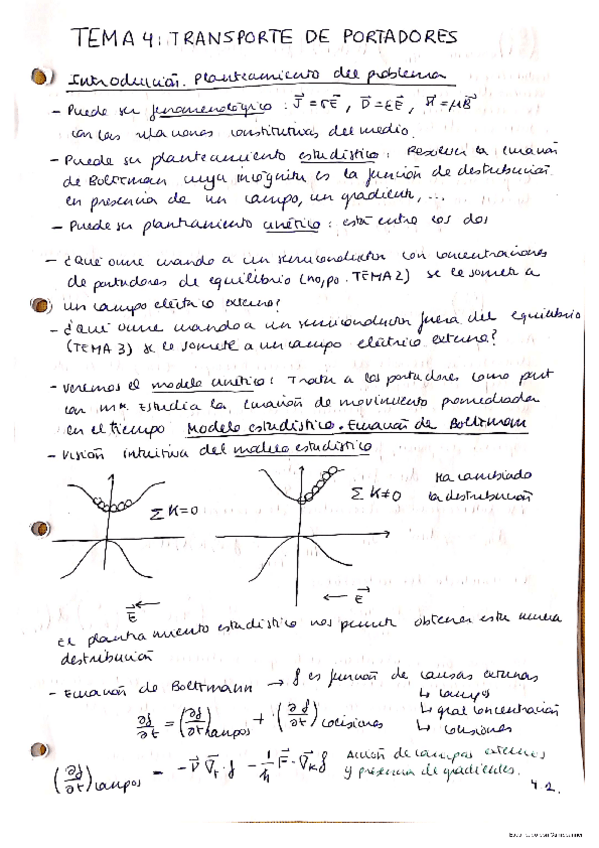 TEMA 4: TRANSPORTE DE PORTADORES
Introducción. Planteamiento del problema
- Puede ser fenomenológico: J⃗ = σE⃗, D⃗ = εE⃗, H⃗ = μB⃗
con las relaciones constitutivas del medio.
- Puede ser planteamiento estadístico: Resolver la ecuación
de Boltzmann cuya incógnita es la función de distribución
en presencia de un campo, un gradiente, ...
- Puede ser planteamiento cinético: está entre los dos
- ¿Qué ocurre cuando a un semiconductor con concentraciones
de portadores de equilibrio (no,po. TEMA 2) se le somete a
un campo eléctrico externo?
- ¿Qué ocurre cuando a un semiconductor fuera del equilibrio
(TEMA 3) se le somete a un campo eléctrico externo?
- Veremos el modelo cinético: Trata a los portadores como part
con m*. Estudia la ecuación de movimiento promediada
en el tiempo Modelo estadístico. Ecuación de Boltzmann
- Visión intuitiva del modelo estadístico
Σ K=0
Σ K≠0
Ha cambiado
la distribución
E⃗ ←
← E⃗
El planteamiento estadístico nos permite obtener esta nueva
distribución
- Ecuación de Boltzmann → f es función de causas externas
↳ campos
↳ grad concentración
↳ colisiones
∂f/∂t = (∂f/∂t)campos + (∂f/∂t)colisiones
(∂f/∂t)campos = -v⃗ ∇⃗r·f - 1/ħ F⃗·∇⃗k f
Acción de campos externos
y presencia de gradientes.
4.2.